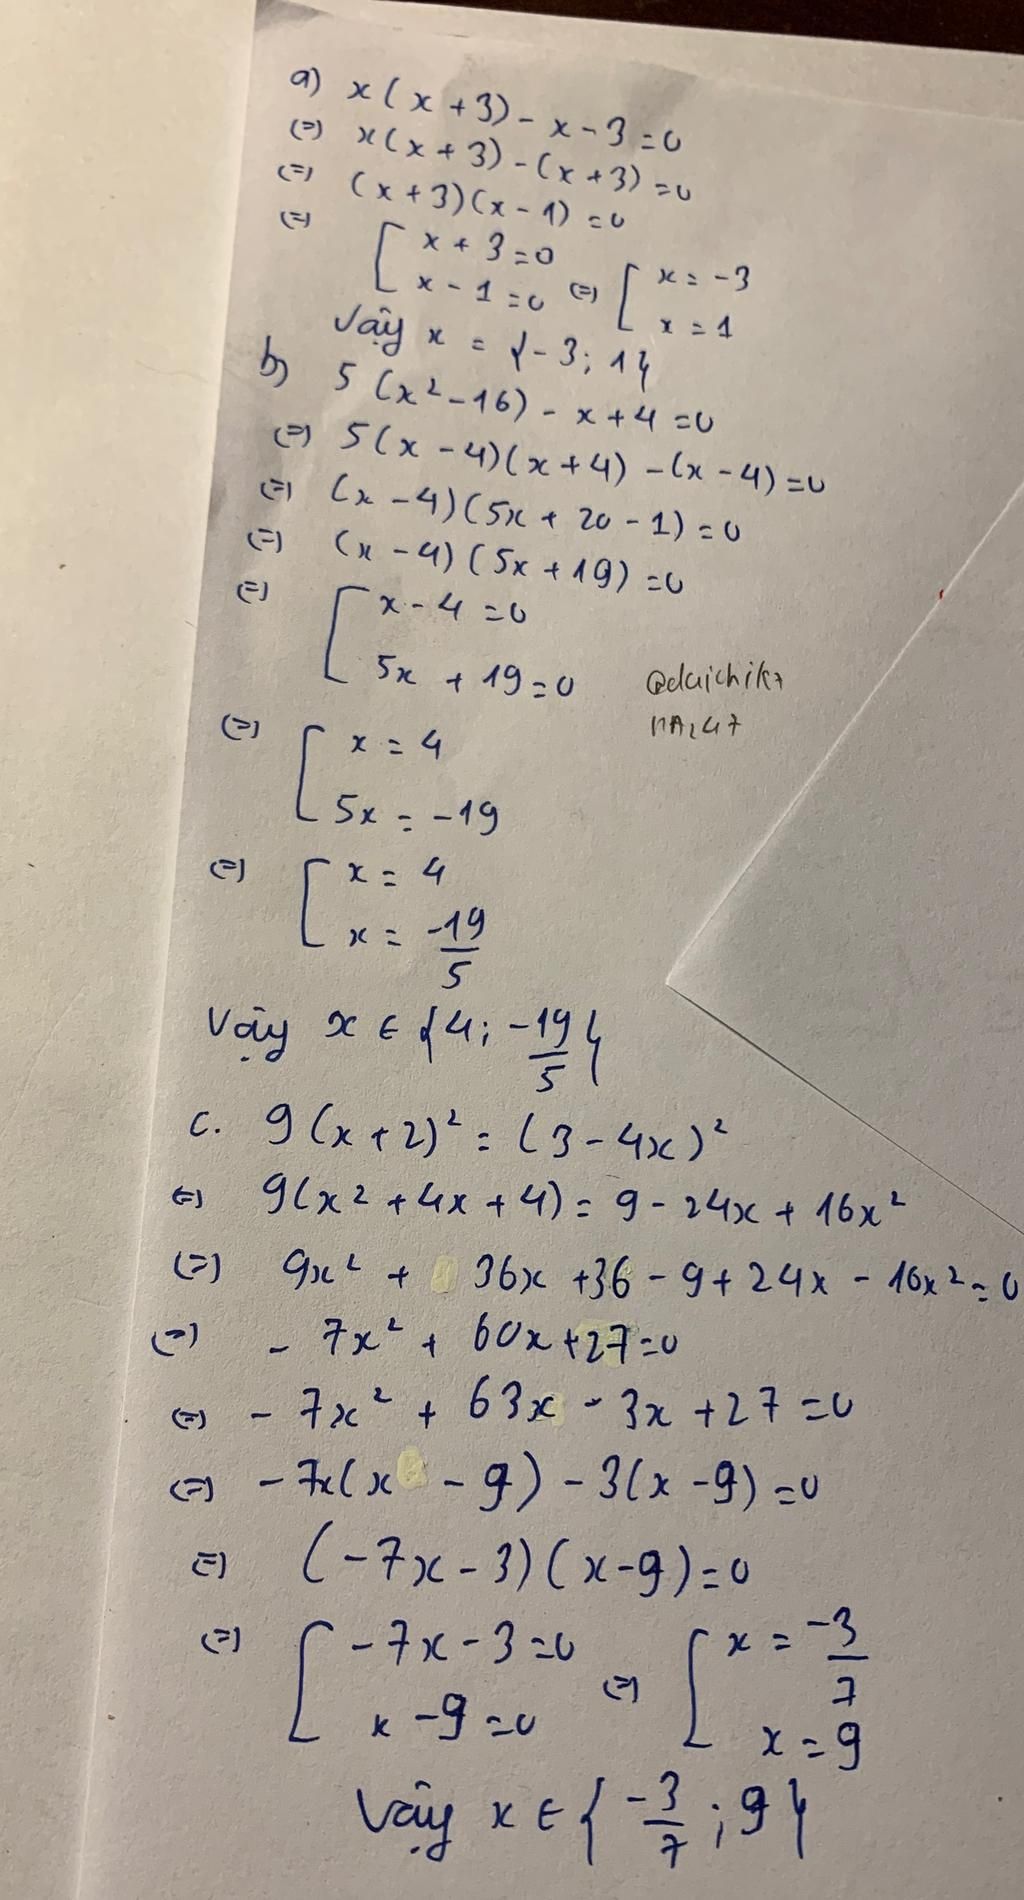 a) x(x+3)-x-3=0
(=) x(x+3)-(x+3)=0
(=) (x+3)(x-1)=0
(=) [ x+3=0
x-1=0 (=) [ x=-3
x=1
Vậy x = {-3; 1}
b) 5(x²-16)-x+4=0
(=) 5(x-4)(x+4)-(x-4)=0
(=) (x-4)(5x+20-1)=0
(=) (x-4)(5x+19)=0
(=) [ x-4=0
5x+19=0
(=) [ x=4
5x=-19
(=) [ x=4
x=-19/5
Vậy x ∈ {4; -19/5}
c. 9(x+2)²=(3-4x)²
(=) 9(x²+4x+4)=9-24x+16x²
(=) 9x²+36x+36-9+24x-16x²=0
(=) -7x²+60x+27=0
(=) -7x²+63x-3x+27=0
(=) -7x(x-9)-3(x-9)=0
(=) (-7x-3)(x-9)=0
(=) [ -7x-3=0
x-9=0 (=) [ x=-3/7
x=9
Vậy x ∈ {-3/7; 9}